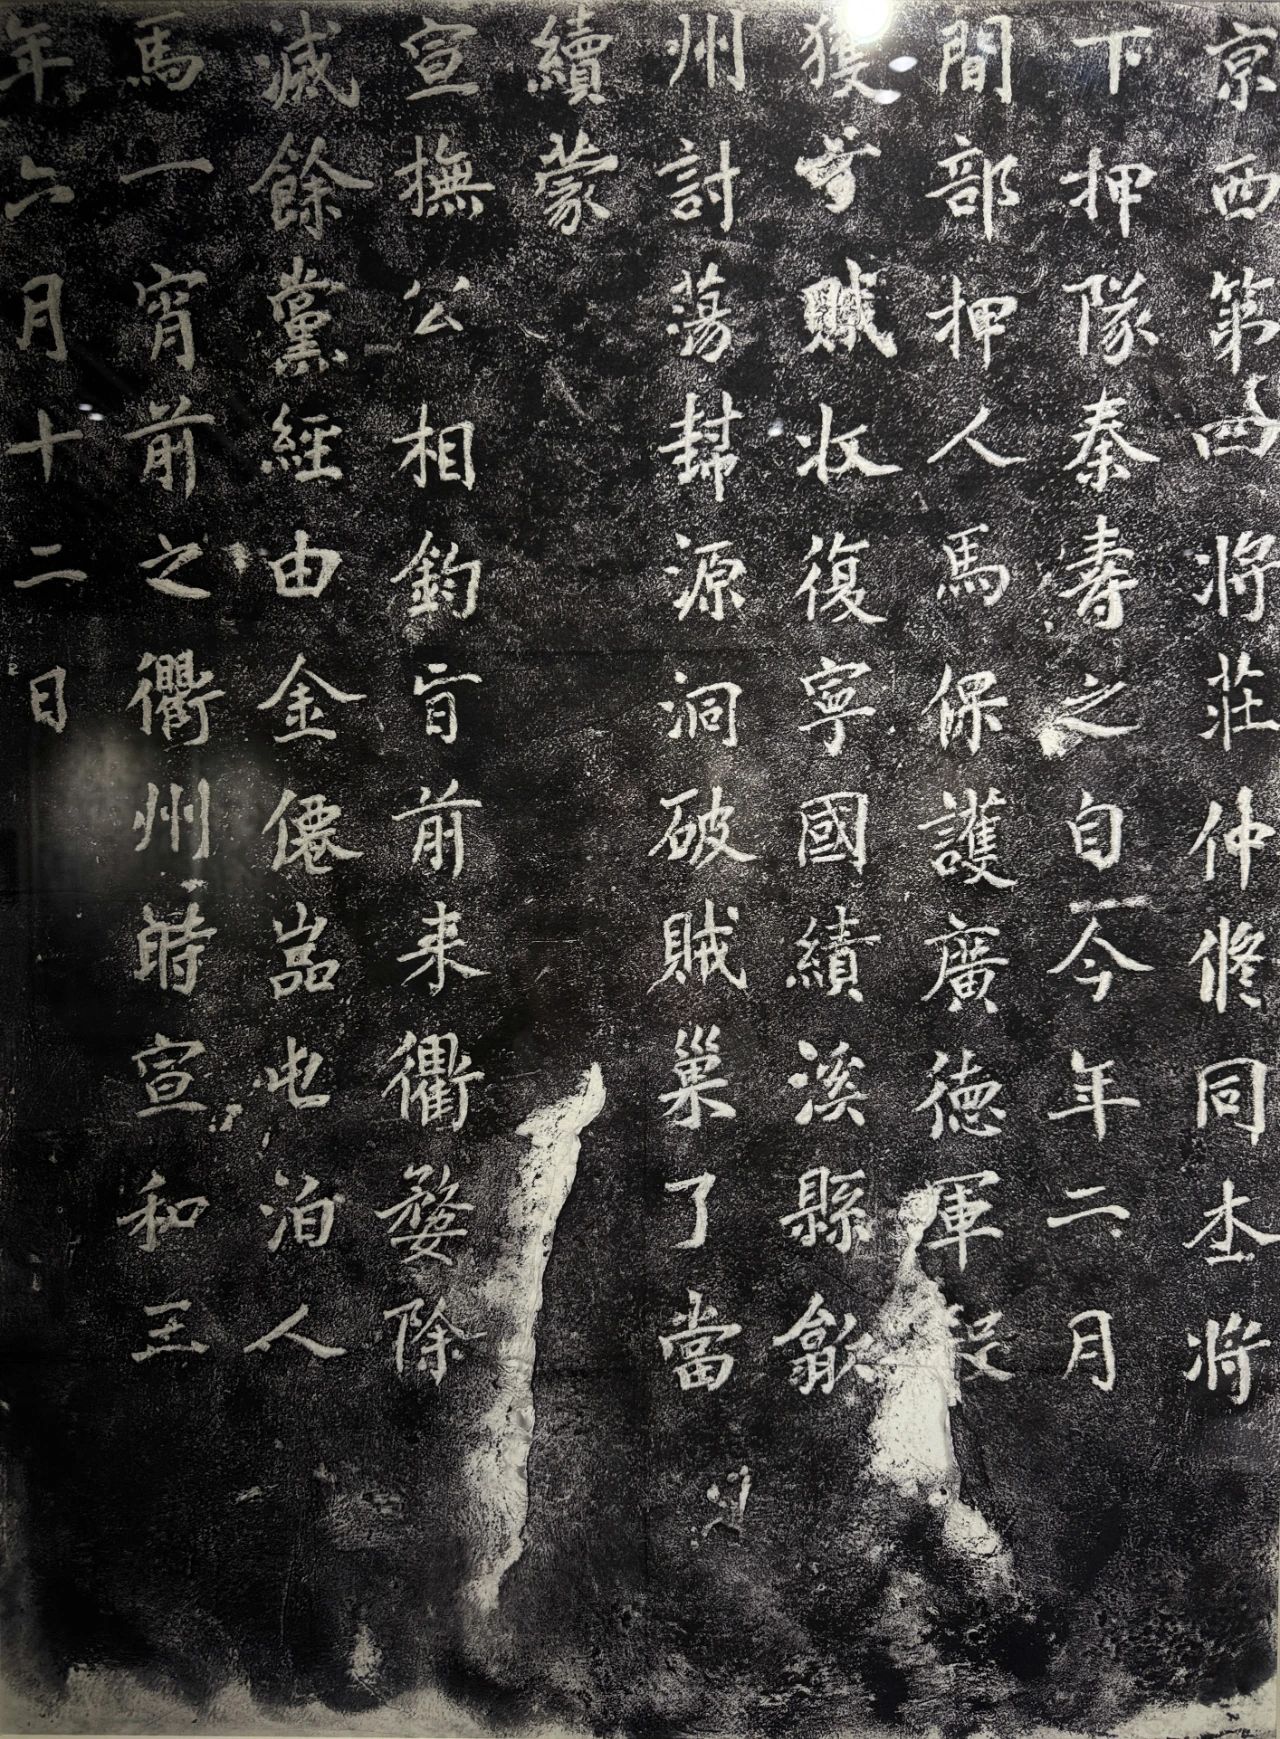 京西第四将莊仲修同本将
下押隊秦壽之自今年二月
間部押人馬保護廣德軍殺
獲賊收復寧國績溪縣歙
州討蕩幇源洞破賊巢了當
續蒙
宣撫公相鈞旨前来衢婺除
滅餘黨經由金僊嵓屯泊人
馬一宵前之衢州時宣和三
年六月十二日